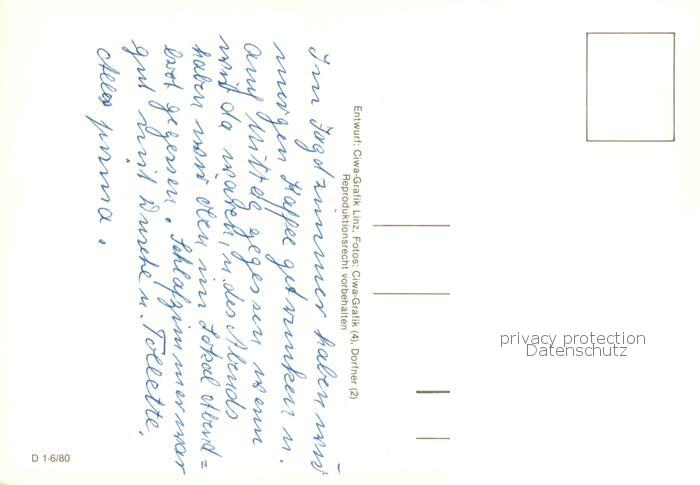 Im Jagdzimmer haben wir
morgen Kaffee getrunken u.
auch Mittag gegessen wenn
wir da waren, u. des Abends
haben wir oben im Lokal Abend=
brot gegessen. Schlafzimmer war
gut mit Dusche u. Toilette.
Alles prima.
Entwurf: Ciwa-Grafik Linz, Fotos: Ciwa-Grafik (4), Dorfner (2)
Reproduktionsrecht vorbehalten
privacy protection
Datenschutz
D 1-6/80